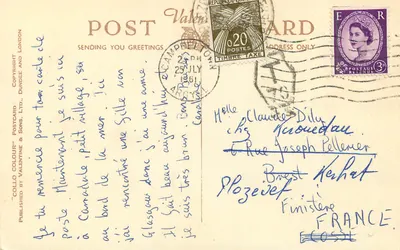 POST CARD
Valentine's
SENDING YOU GREETINGS
ADDRESS ONLY.
"COLLO COLOUR" POSTCARD COPYRIGHT
PUBLISHED BY VALENTINE & SONS, LTD., DUNDEE AND LONDON
Je te remercie pour ta carte de
poste Maintenant je suis ici
à Carradale, petit village au
au bord de la mer. Ici
j'ai rencontré une fille van
Glasgow donc j'ai une amie
Il fait beau aujourd'hui et
je suis très brun.
Caroline
CAMPBELTOWN
PM
25 JLY
1961
0,20
TIMBRE TAXE
T
E R
POSTAGE
3D
Mlle Claudie Dily
chez
6 Rue Joseph Pellener
Brest Kerhat
Plozevet
Finistère
FRANCE